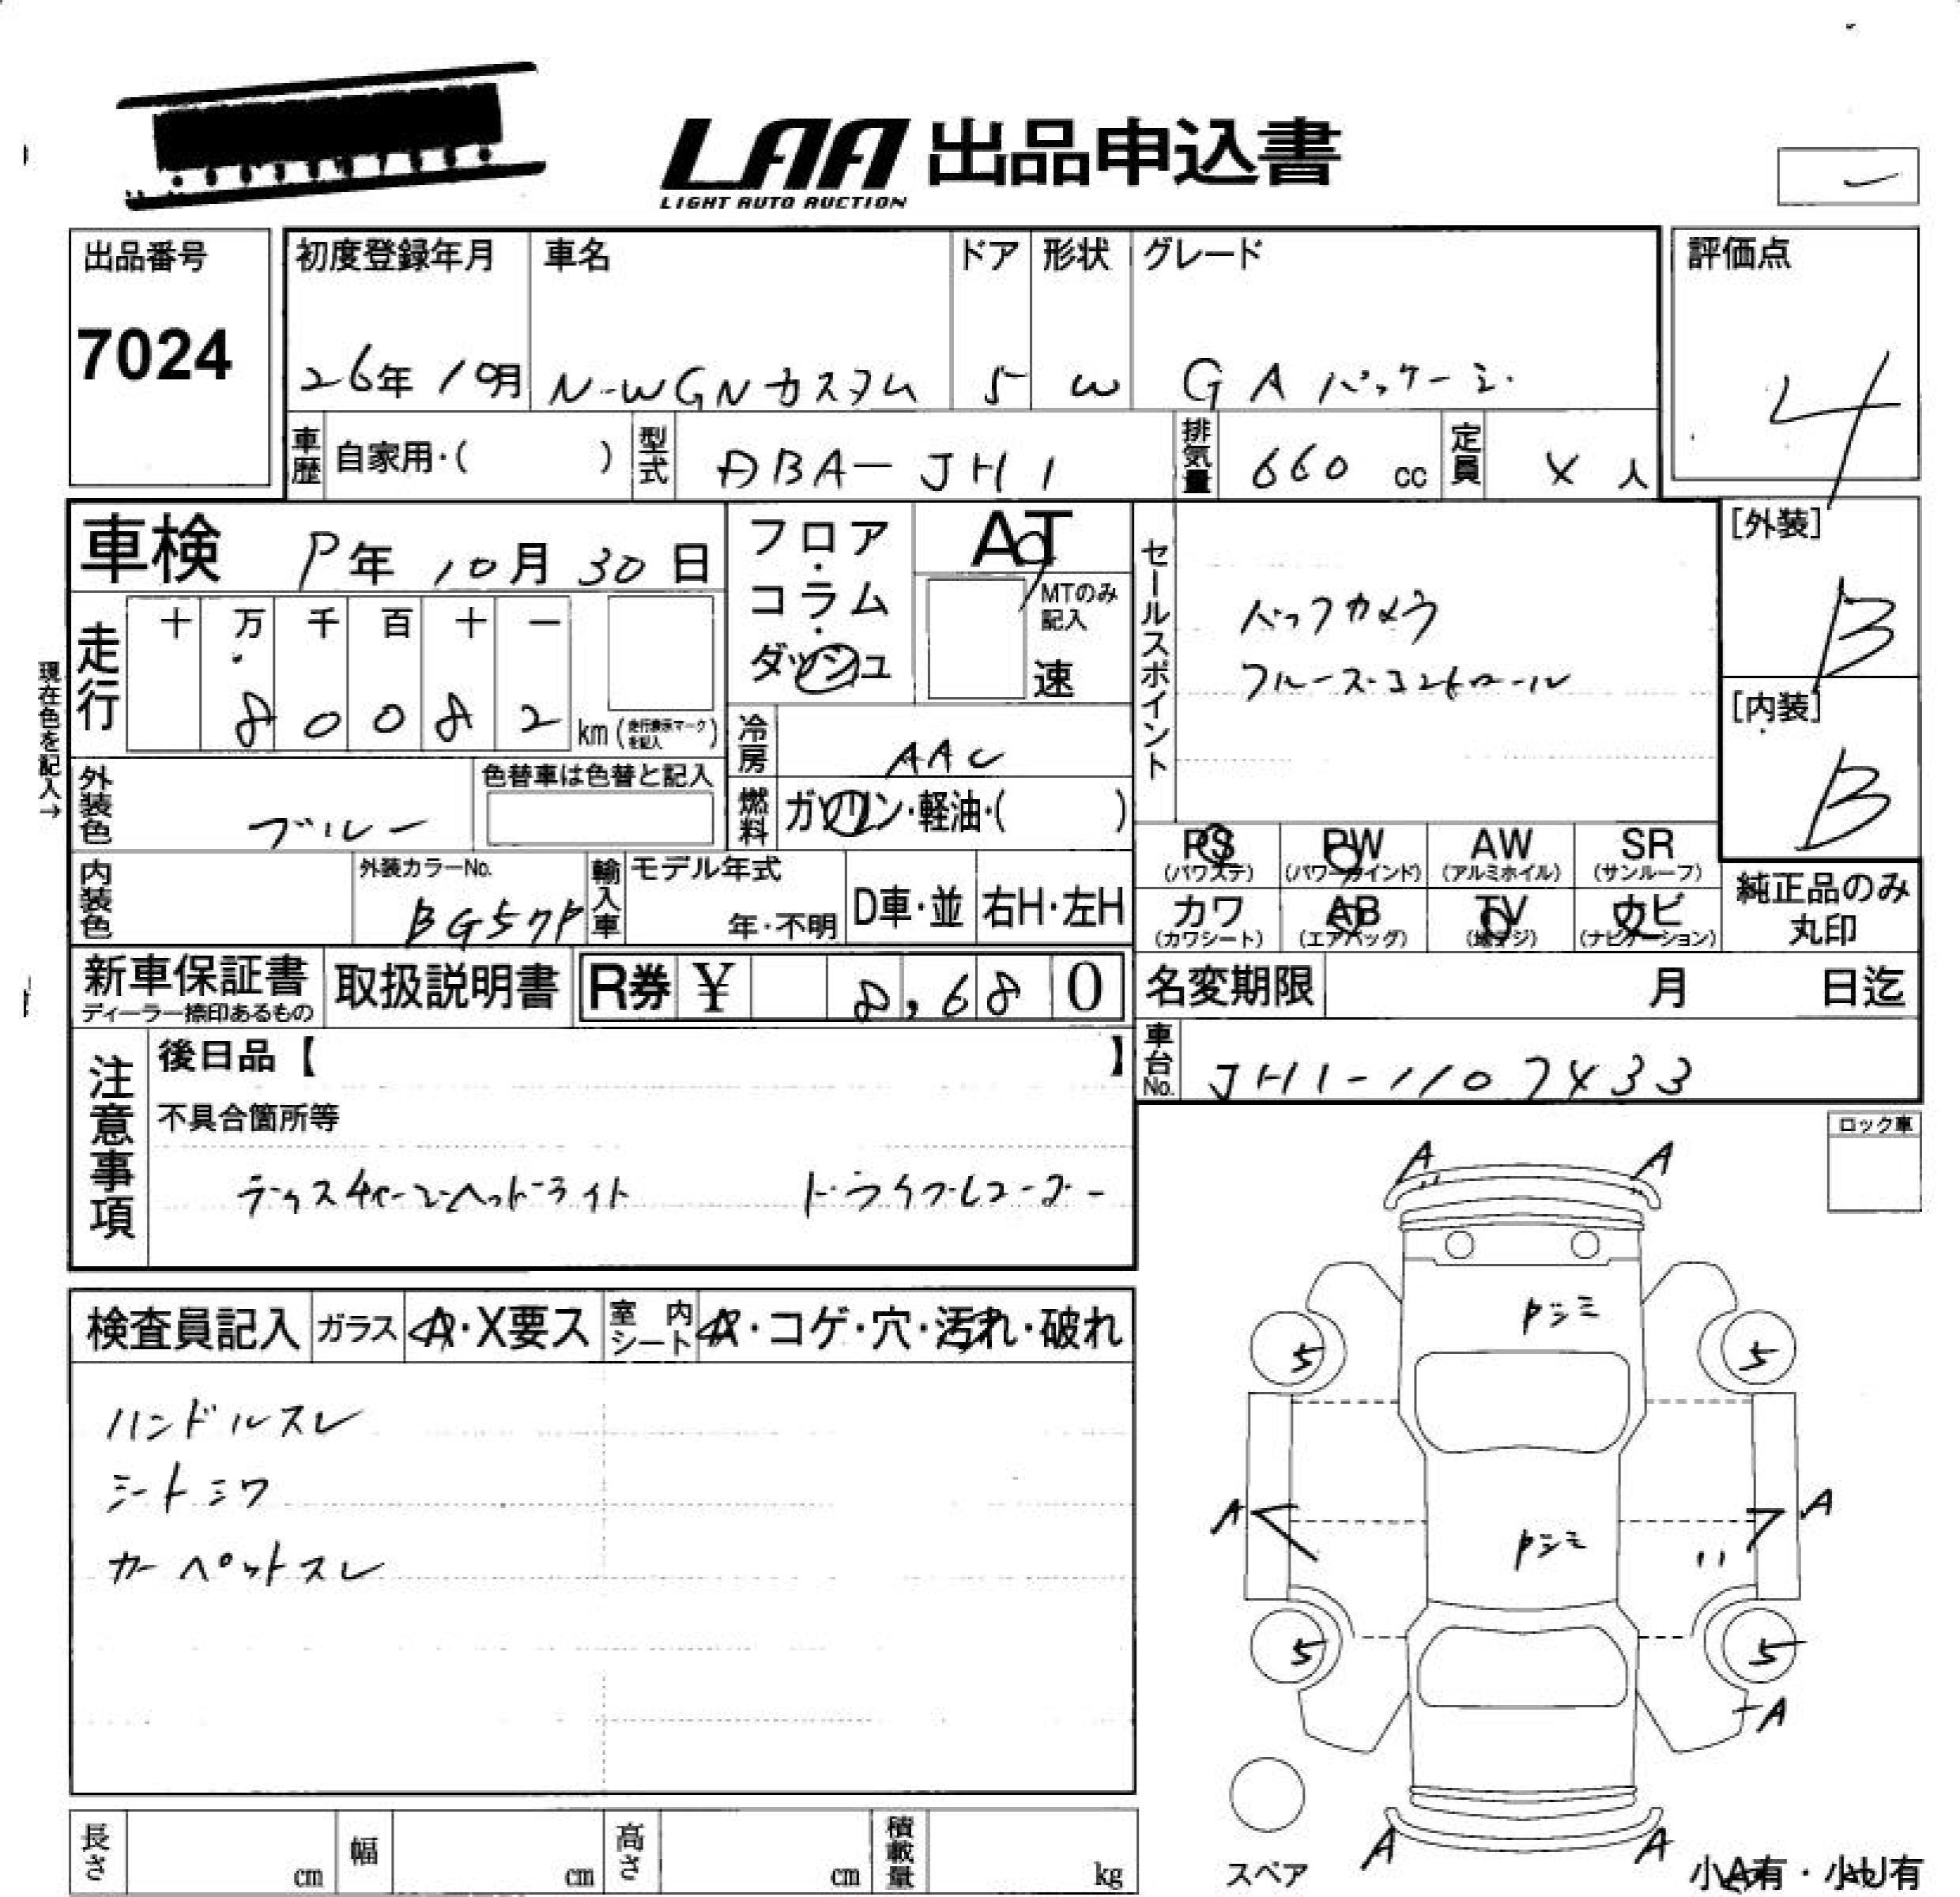 LAA 出品申込書
LIGHT AUTO AUCTION
出品番号
7024
初度登録年月 車名 ドア 形状 グレード
26年 10月 N-WGNカスタム 5 W G Aパッケージ
評価点
4
車歴 自家用・( ) 型式 DBA-JH1 排気量 660 cc 定員 4 人
車検 9年 10月 30日
フロア・コラム・ダッシュ
AT
MTのみ記入
速
セールスポイント
バックカメラ
クルーズコントロール
[外装]
B
[内装]
B
現在色を記入→
走行 十 万 千 百 十 一
8 0 0 8 2 km (走行表示マークを記入)
冷房 AAC
外装色 ブルー 色替車は色替と記入
燃料 ガソリン・軽油・( )
PS PW AW SR
(パワステ) (パワーウインド) (アルミホイル) (サンルーフ)
カワ AB TV ナビ
(カワシート) (エアバッグ) (地デジ) (ナビゲーション)
純正品のみ
丸印
内装色 外装カラーNo. BG57P 輸入車 モデル年式 年・不明 D車・並 右H・左H
新車保証書 取扱説明書 R券 ¥ 8,680
ディーラー捺印あるもの
名変期限 月 日迄
車台No. JH1-1107433
注意事項
後日品【 】
不具合箇所等
ディスチャージヘッドライト ドライブレコーダー
ロック車
A A
Pシミ
5 5
A A
Pシミ
5 5
A
A A
検査員記入 ガラス A・X要ス 室内シート A・コゲ・穴・汚れ・破れ
ハンドルスレ
シートシワ
カーペットスレ
長さ cm 幅 cm 高さ cm 積載量 kg
スペア
小A有・小U有